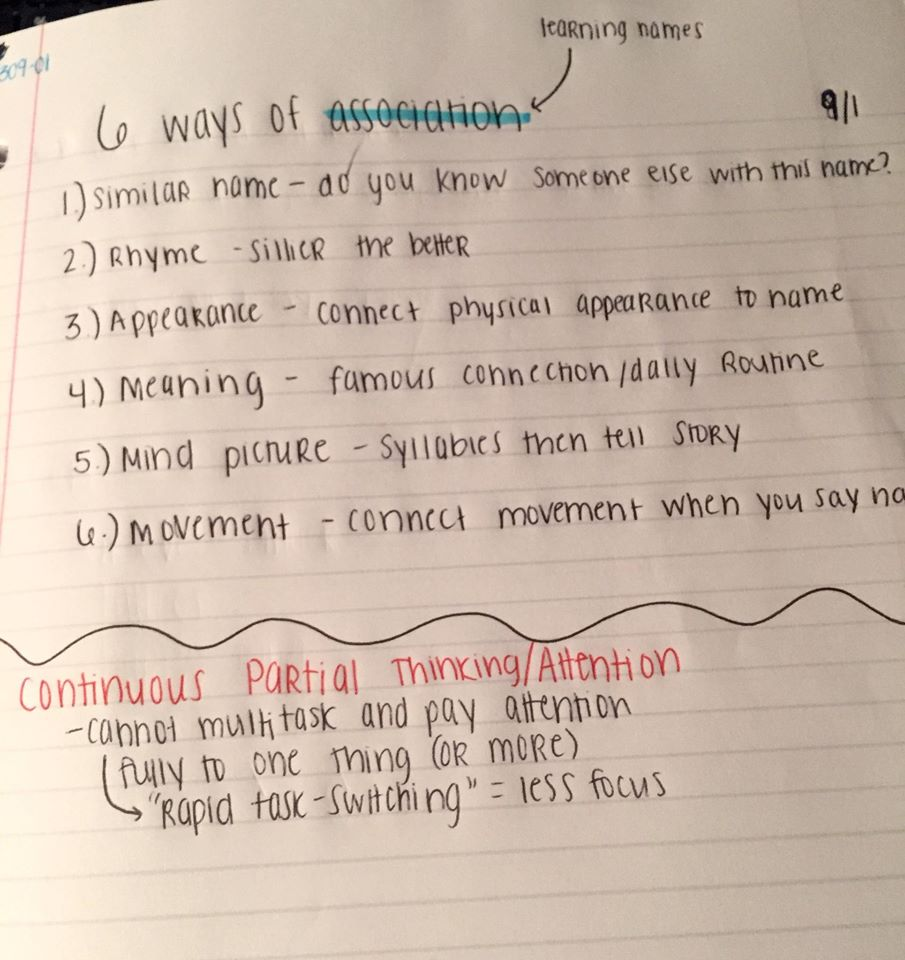 learning names
309-01
6 ways of association
9/1
1.) Similar name - do you know someone else with this name?
2.) Rhyme - Sillier the better
3.) Appearance - connect physical appearance to name
4.) Meaning - famous connection/daily Routine
5.) Mind picture - Syllables then tell STORY
6.) Movement - connect movement when you say na
Continuous Partial Thinking/Attention
- cannot multitask and pay attention
fully to one thing (OR MORE)
"Rapid task-switching" = less focus